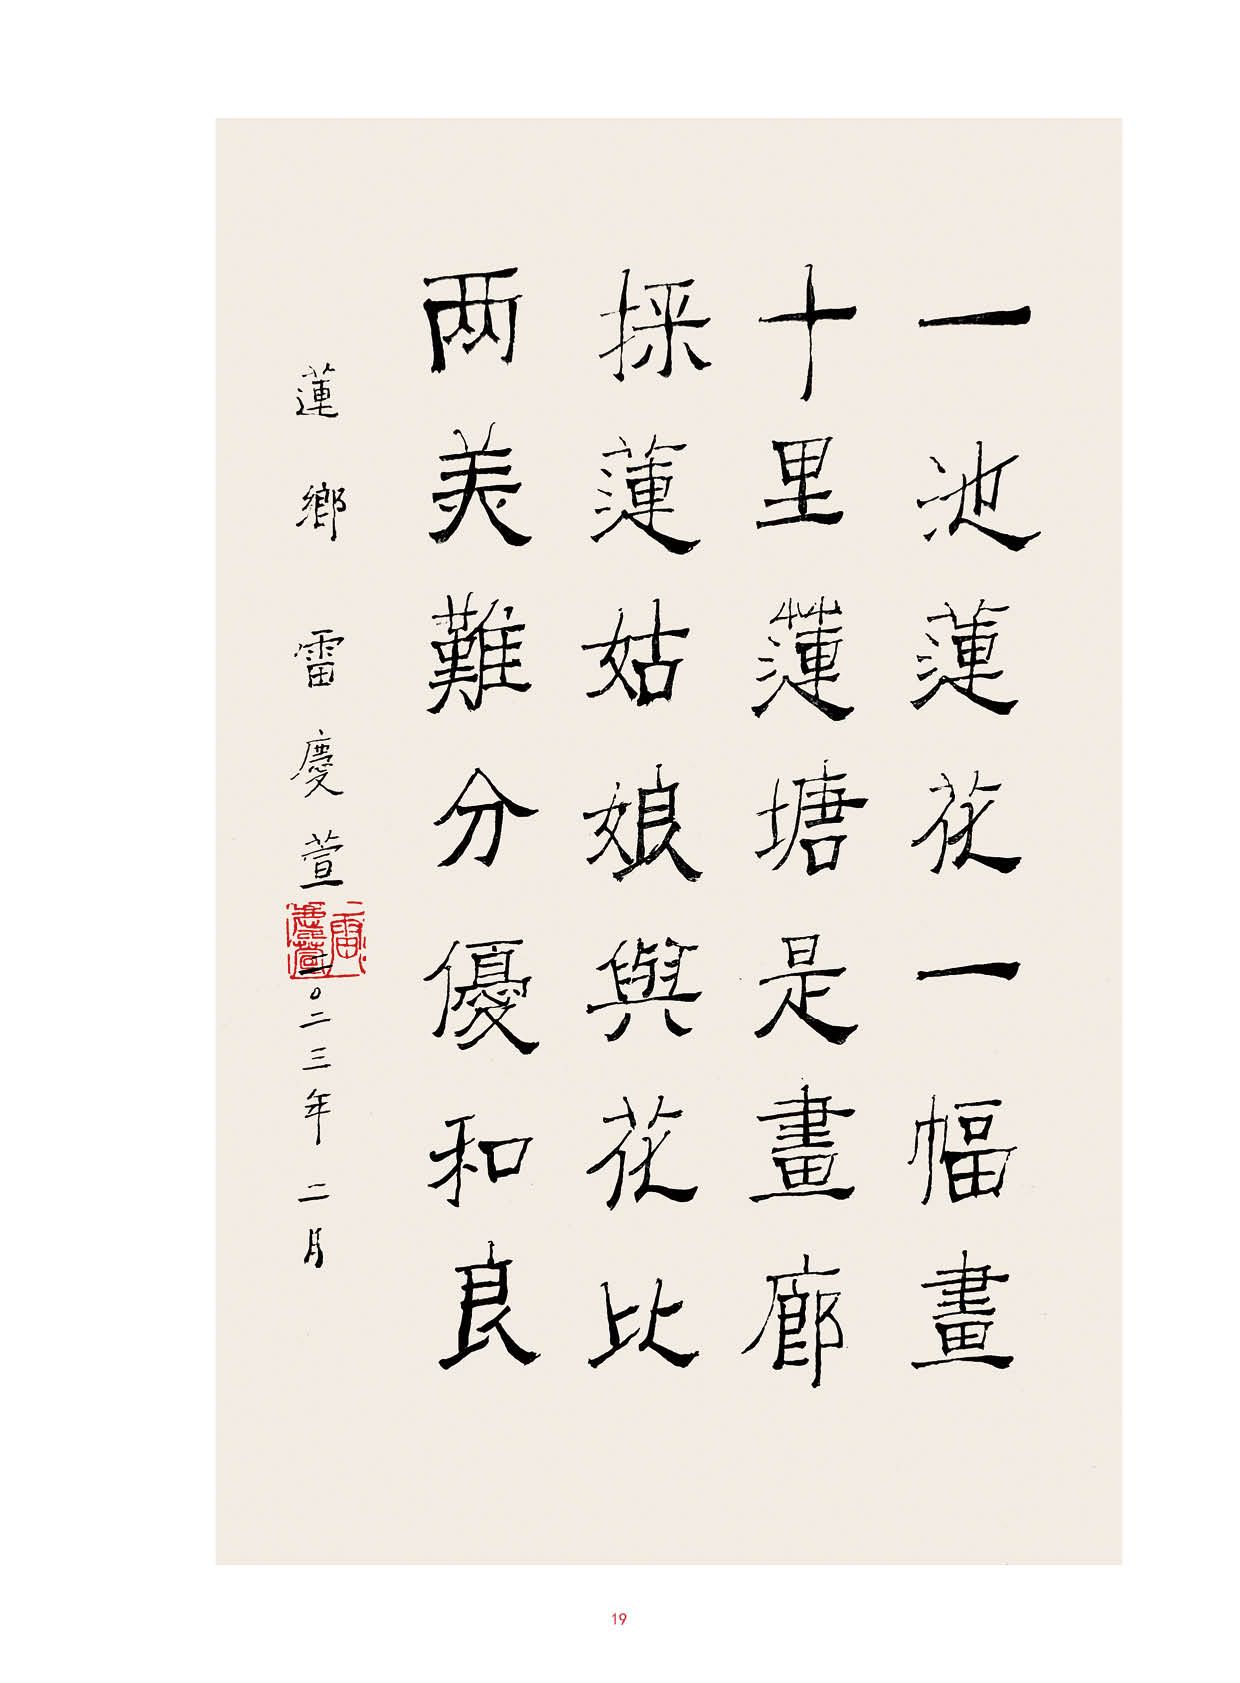 一池蓮花一幅畫
十里蓮塘是畫廊
採蓮姑娘與花比
两美難分優和良
蓮鄉 雷慶萱 二〇二三年 二月
雷慶萱
19